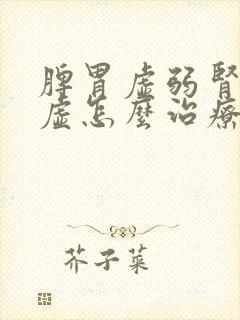 脾胃虛弱腎
虛怎麼治療
芥子菜